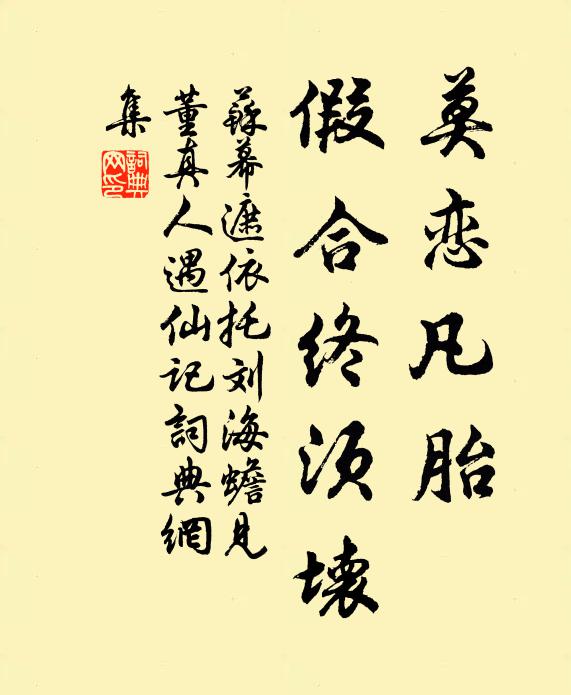 莫恋凡胎
假合终须壞
蘇幕遮依托刘海蟾見
董真人遇仙记詞典網
集
詞典网印